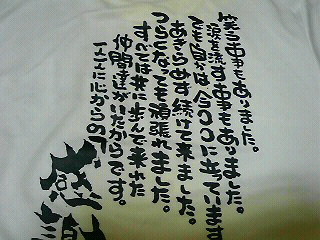 笑う事もありました。
涙を流す事もありました。
でも自分は今ココに立っています
あきらめず続けて来ました。
つらくなっても頑張れました。
すべては共に歩んで来れた
仲間達がいたからです。
一人一人に心からの
感謝